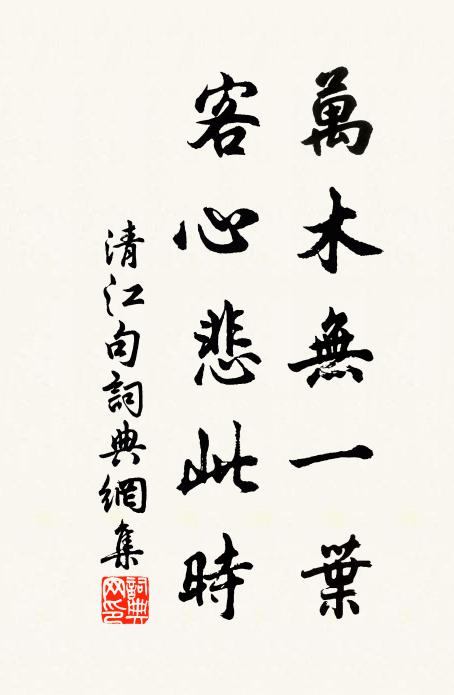 萬木無一葉
客心悲此時
清江句詞典網集
詞典網印